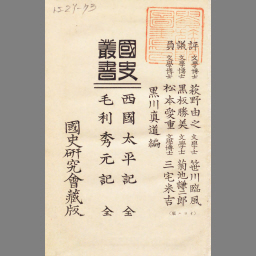 1527-93
評議員
文學博士 萩野由之 文學士 笹川臨風
文學博士 黒板勝美 文學士 菊池謙二郎
文學博士 松本愛重 文學博士 三宅米吉
黒川真道編
國史叢書
西國太平記 全
毛利秀元記 全
國史研究會藏版